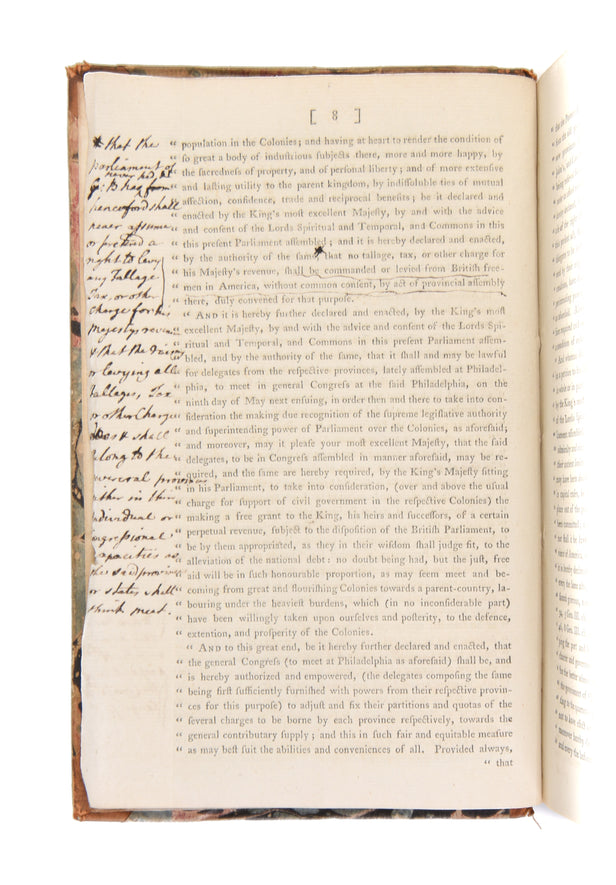 [ 8 ]
* that the
parliament of
never had, at
G: B has from
henceford shall
never assume
or pretend a
right to levy
any Tallage
Tax, or other
Charge for his
Majestys revenue
& that the
or levying all
Tallages, Tax
or other Charge
shall
belong to the
several provinces
either in their
individual or
Congressional
capacities as
the said provinces
or states shall
think meet.
“ population in the Colonies; and having at heart to render the condition of
“ ſo great a body of induſtrious ſubjects there, more and more happy, by
“ the ſacredneſs of property, and of perſonal liberty; and of more extenſive
“ and laſting utility to the parent kingdom, by indiſſoluble ties of mutual
“ affection, confidence, trade and reciprocal benefits; be it declared and
“ enacted by the King's moſt excellent Majeſty, by and with the advice
“ and conſent of the Lords Spiritual and Temporal, and Commons in this
“ this preſent Parliament aſſembled; and it is hereby declared and enacted,
“ by the authority of the ſame, that no tallage, tax, or other charge for
“ his Majeſty's revenue, ſhall be commanded or levied from Britiſh free-
“ men in America, without common conſent, by act of provincial aſſembly
“ there, duly convened for that purpoſe.
“ AND it is hereby further declared and enacted, by the King's moſt
“ excellent Majeſty, by and with the advice and conſent of the Lords Spi-
“ ritual and Temporal, and Commons in this preſent Parliament aſſem-
“ bled, and by the authority of the ſame, that it ſhall and may be lawful
“ for delegates from the reſpective provinces, lately aſſembled at Philadel-
“ phia, to meet in general Congreſs at the ſaid Philadelphia, on the
“ ninth day of May next enſuing, in order then and there to take into con-
“ ſideration the making due recognition of the ſupreme legiſlative authority
“ and ſuperintending power of Parliament over the Colonies, as aforeſaid;
“ and moreover, may it pleaſe your moſt excellent Majeſty, that the ſaid
“ delegates, to be in Congreſs aſſembled in manner aforeſaid, may be re-
“ quired, and the ſame are hereby required, by the King's Majeſty ſitting
“ in his Parliament, to take into conſideration, (over and above the uſual
“ charge for ſupport of civil government in the reſpective Colonies) the
“ making a free grant to the King, his heirs and ſucceſſors, of a certain
“ perpetual revenue, ſubject to the diſpoſition of the Britiſh Parliament, to
“ be by them appropriated, as they in their wiſdom ſhall judge fit, to the
“ alleviation of the national debt: no doubt being had, but the juſt, free
“ aid will be in ſuch honourable proportion, as may ſeem meet and be-
“ coming from great and flouriſhing Colonies towards a parent-country, la-
“ bouring under the heavieſt burdens, which (in no inconſiderable part)
“ have been willingly taken upon ourſelves and poſterity, to the defence,
“ extention, and proſperity of the Colonies.
“ AND to this great end, be it hereby further declared and enacted, that
“ the general Congreſs (to meet at Philadelphia as aforeſaid) ſhall be, and
“ is hereby authorized and empowered, (the delegates compoſing the ſame
“ being firſt ſufficiently furniſhed with powers from their reſpective provin-
“ ces for this purpoſe) to adjuſt and fix their partitions and quotas of the
“ ſeveral charges to be borne by each province reſpectively, towards the
“ general contributary ſupply; and this in ſuch fair and equitable meaſure
“ as may beſt ſuit the abilities and conveniences of all. Provided always,
“ that